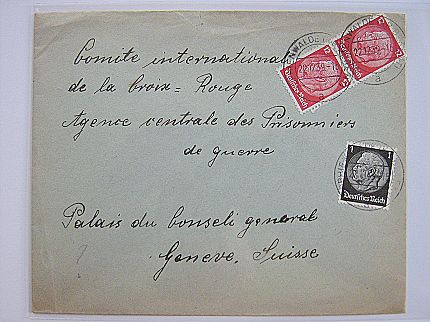 Comite international
de la Croix = Rouge
Agence centrale des Prisonniers
de guerre
Palais du Conseli general
Geneve, Suisse
12 12
Deutsches Reich
12
Deutsches Reich
1 1
Deutsches Reich